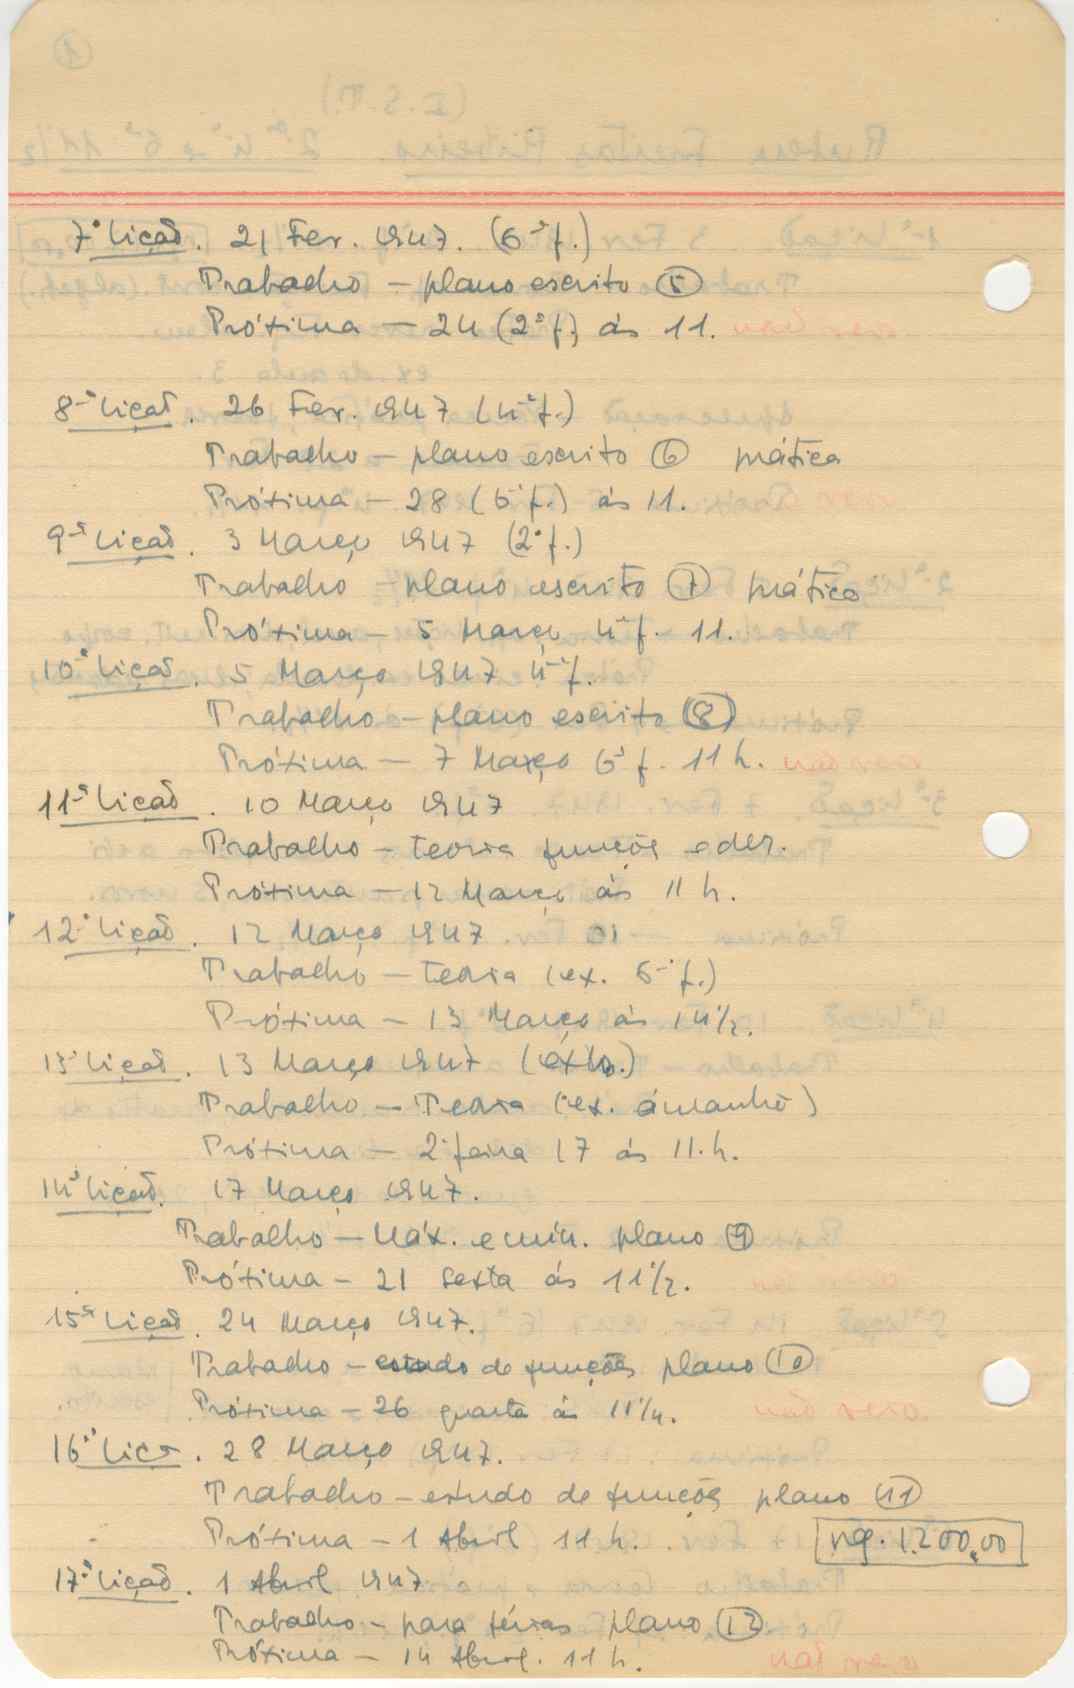 7ª Lição. 21 Fev. 1947. (6ª f.)
Trabalho — plano escrito 5
Próxima — 24 (2ª f) ás 11.
8ª Lição. 26 Fev. 1947 (4ª f.)
Trabalho — plano escrito 6 prática
Próxima — 28 (6ª f.) ás 11.
9ª Lição. 3 Março 1947 (2ª f.)
Trabalho plano escrito 7 prática
Próxima — 5 Março 4ª f. 11.
10ª Lição. 5 Março 1947 4ª f.
Trabalho — plano escrito 8
Próxima — 7 Março 6ª f. 11 h.
11ª Lição. 10 Março 1947
Trabalho — teoria funções e der.
Próxima — 12 Março ás 11 h.
12ª Lição. 12 Março 1947
Trabalho — teoria (ex. 6ª f.)
Próxima — 13 Março ás 14 1/2.
13ª Lição. 13 Março 1947 (extr.)
Trabalho — Teoria (ex. ámanhã)
Próxima — 2ª feira 17 ás 11.h.
14ª Lição. 17 Março 1947.
Trabalho — Máx. e mín. plano 9
Próxima — 21 sexta ás 11 1/2.
15ª Lição. 24 Março 1947.
Trabalho — estudo de funções plano 10
Próxima — 26 quarta ás 11 1/4.
16ª Liç. 28 Março 1947.
Trabalho — estudo de funções plano 11
Próxima — 1 Abril 11 h. rg. 1.200,00
17ª Lição. 1 Abril 1947
Trabalho — para férias plano 12
Próxima — 14 Abril. 11 h.